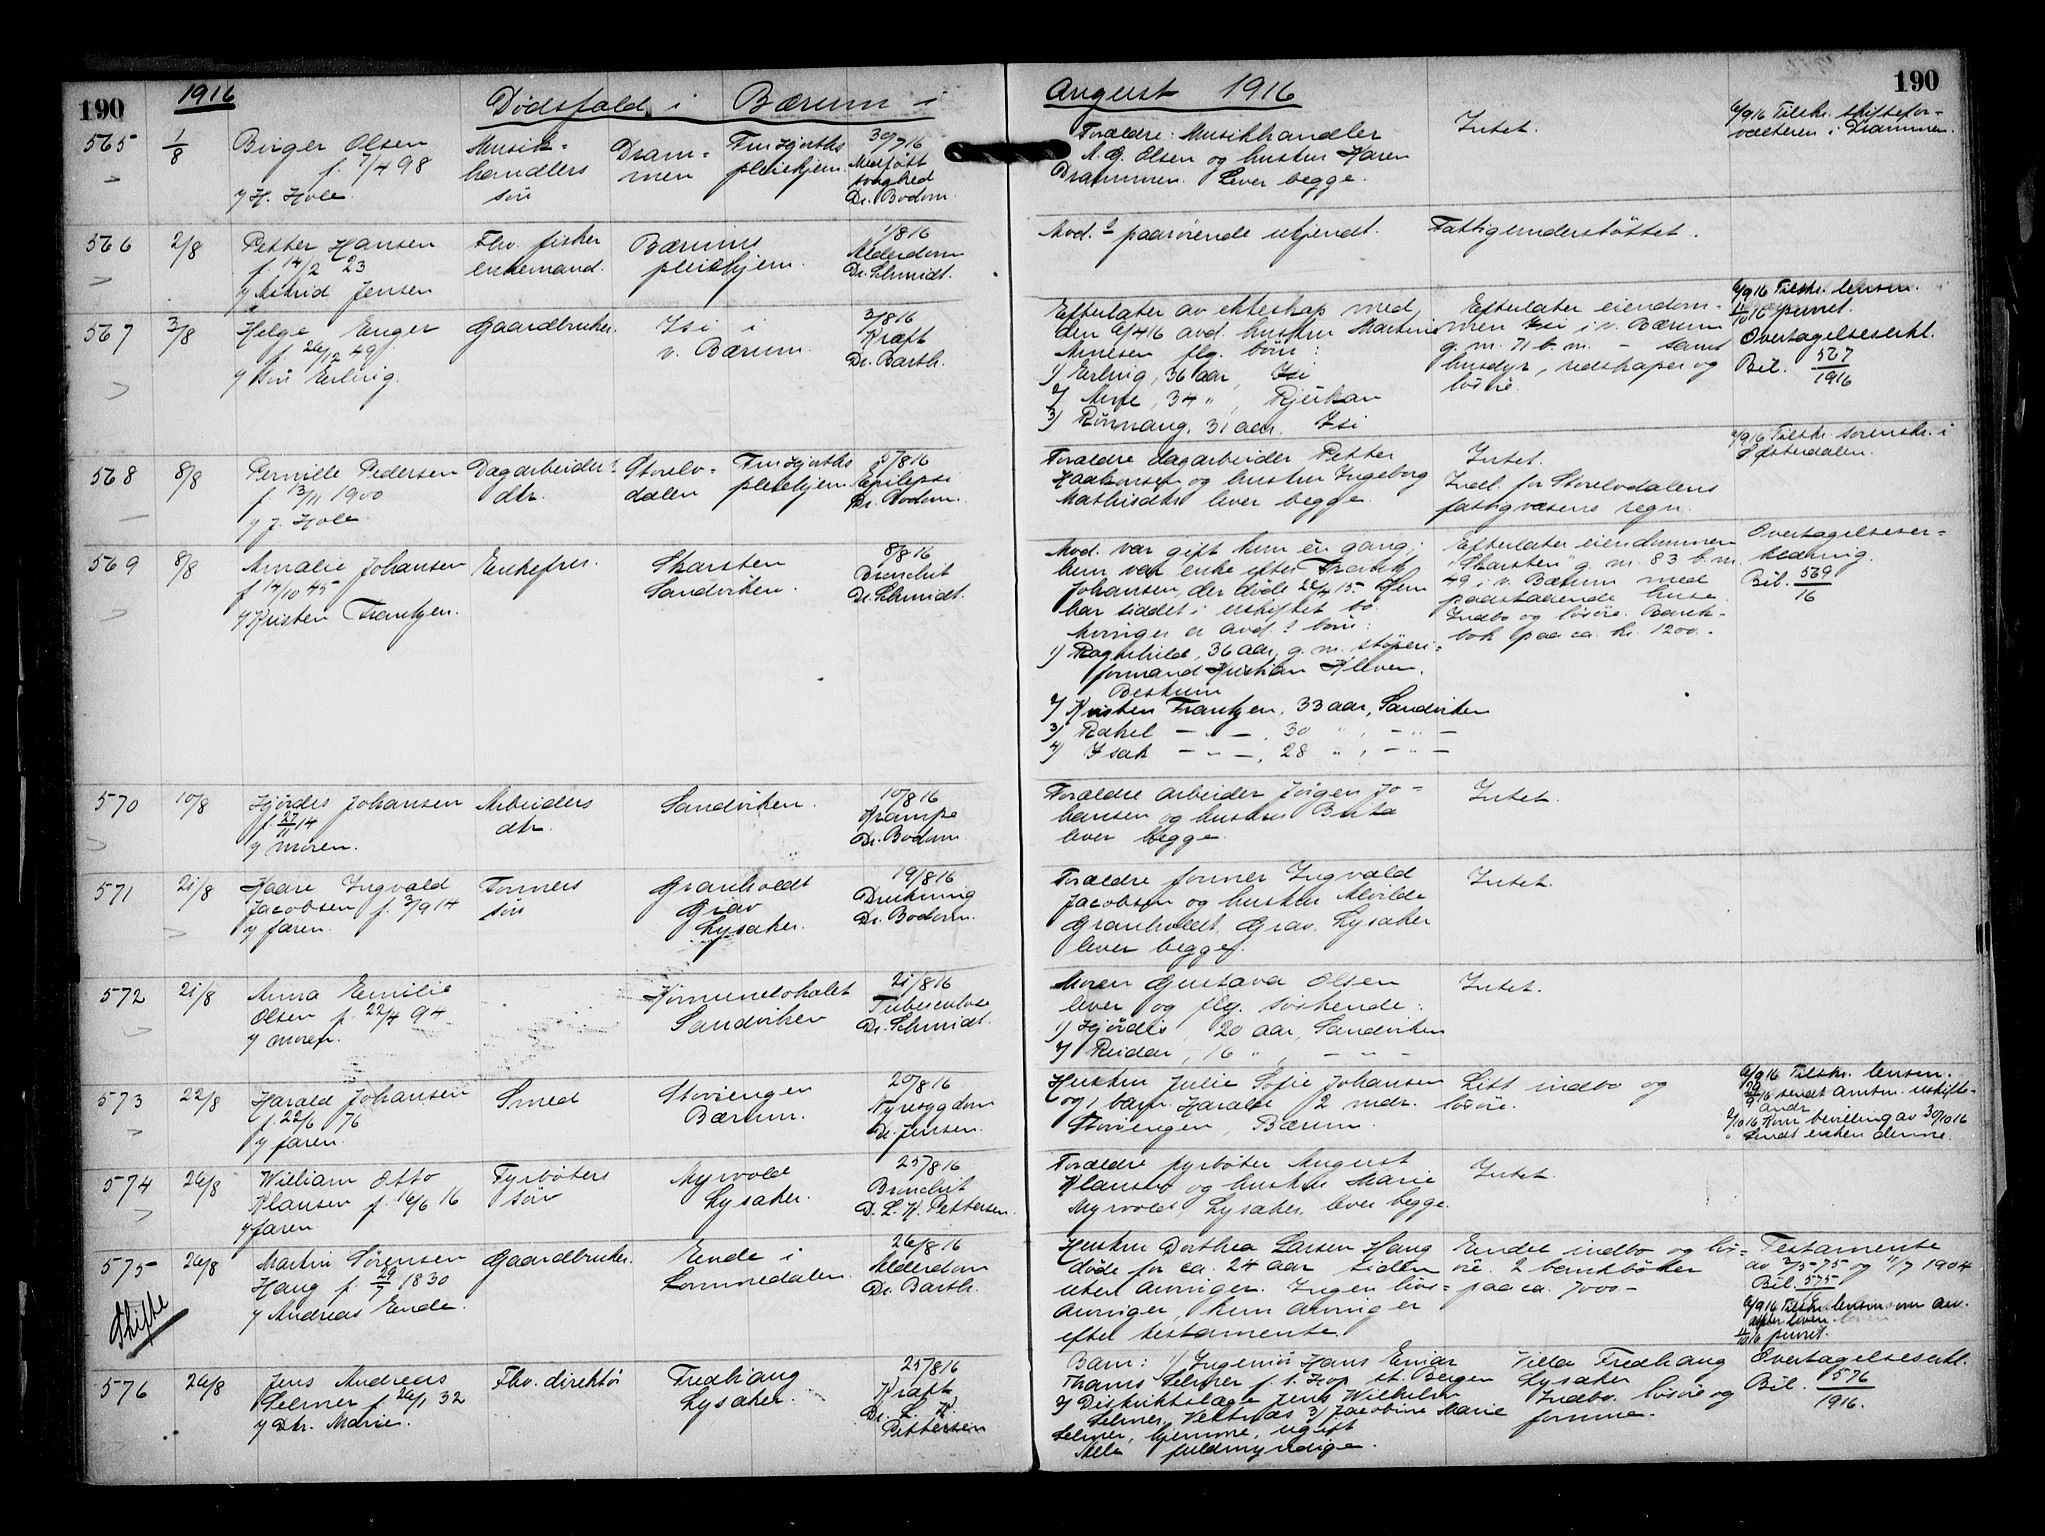 190
1916
Dødsfald i Bærum i
August 1916
190
565
1/8
Birger Olsen
f. 7/4 98
v/ H. Hole
Musik-
handlers
søn
Dram-
men
Fru Hjorths
pleiehjem.
30/7 16
Medfødt
svaghed
Dr. Bodom
Forældre: Musikhandler
A. G. Olsen og hustru Karen
Drammen. Lever begge.
Intet.
6/9 16 Tilskr. skiftefor-
valteren i Drammen.
566
2/8
Petter Hansen
f. 14/2 23
v/ Astrid Jensen
Fhv. fisker
enkemand.
Bærums
pleiehjem.
1/8 16
Alderdom
Dr. Schmidt.
Avd.s paarørende ukjendt.
Fattigunderstøttet.
567
3/8
Helge Enger
f. 26/12 49
v/ søn Erling.
Gaardbruker.
Isi i
v. Bærum.
3/8 16
Kræft
Dr. Barth.
Efterlater av ekteskap med
den 6/4 16 avd. hustru Martine
Arnesen flg. børn:
1) Erling, 36 aar, Isi
2) Arne, 34 " , Rjukan
3) Rønnaug, 31 aar. Isi
Efterlater eiendom-
men Isi i v. Bærum
g. nr. 71 b. nr. - samt
husdyr, redskaper og
løsøre
6/9 16 Tilskr. lensm.
10/16 purret.
Overtagelseserkl.
Bil. 567/1916
568
8/8
Pernille Pedersen
f. 13/11 1900
v/ J. Hole.
Dagarbeiders
dtr.
Storelv-
dalen
Fru Hjorths
pleiehjem
5/8 16
Epilepsi
Dr. Bodom.
Forældre dagarbeider Petter
Haakonsen og hustru Ingeborg
Mathisdtr. lever begge
Intet.
Indl. for Storelvdalens
fattigvæsens regn.
6/9 16 Tilskr. sorenskr. i
Østerdalen.
569
8/8
Amalie Johansen
f. 14/10 45
v/ Kristen Frantzen.
Enkefru.
Skarsten
Sandviken.
8/8 16
Bronchit
Dr. Schmidt.
Avd. var gift kun én gang;
hun var enke efter Frantz
Johansen, der døde 22/4 15. Hun
har siddet i uskiftet bo.
Arvinger er avd.s børn:
1) Ragnhild, 36 aar, g. m. støperi-
formand Kristian Klever.
Bestum
2) Kristen Frantzen, 33 aar, Sandviken
3) Rakel — " — , 30 " , — " —
4) Isak — " — , 28 " , — " —
Efterlater eiendommen
"Skarsten" g. nr. 83 b. nr.
49 i v. Bærum med
paastaaende huse.
Indbo og løsøre. Bank-
bok paa ca. kr. 1200.-
Overtagelseser-
klæring.
Bil. 569/16
570
10/8
Hjørdis Johansen
f. 27/11 14
v/ moren.
Arbeiders
dtr.
Sandviken.
10/8 16
Krampe
Dr. Bodom.
Forældre arbeider Jørgen Jo-
hansen og hustru Berta
lever begge
Intet.
571
21/8
Kaare Ingvald
Jacobsen f. 3/9 14
v/ faren.
Formers
søn
Granholdt
Grav
Lysaker.
19/8 16
Drukning
Dr. Bodom.
Forældre former Ingvald
Jacobsen og hustru Alvilde
Granholdt, Grav, Lysaker
lever begge.
Intet.
572
21/8
Anna Emilie
Olsen f. 22/4 94
v/ moren.
Komunelokalet
Sandviken
21/8 16
Tuberculose
Dr. Schmidt.
Moren Gustava Olsen
lever og flg. søskende:
1) Hjørdis, 20 aar, Sandviken
2) Reidar, 16 " , — " —
Intet.
573
22/8
Harald Johansen
f. 22/6 76
v/ faren.
Smed
Stovienger
Bærum.
20/8 16
Nyresygdom
Dr. Jensen.
Hustru Julie Sofie Johansen
og 1 barn Harald 2 mdr.
Stoviengen, Bærum.
Litt indbo og
løsøre.
6/9 16 Tilskr. lensm.
29/9 16 sendt amtm. uskifte-
andr.
2/10 16 Kom bevilling av 30/10 16
" Sendt enken denne.
574
26/8
William Otto
Klausen f. 16/6 16
v/ faren
Fyrbøters
søn
Myrvold
Lysaker.
25/8 16
Bronchit
D. L. K. Pettersen.
Forældre fyrbøter August
Klausen og hustru Marie
Myrvold, Lysaker, lever begge.
Intet.
575
26/8
Skifte
Martin Sørensen
Haug f. 29/7 1830
v/ Andreas Eude.
Gaardbruker.
Eude i
Lommedalen
26/8 16
Alderdom
Dr. Barth.
Hustru Dorthea Larsen Haug
døde for ca. 24 aar siden
uten arvinger. Ingen livs-
arvinger, kun arvinger
efter testamente.
Endel indbo og løs-
øre. 2 bankbøker
paa ca. 7000.-
Testamente
av 3/5 75 og 11/7 1904
Bil. 575
6/9 16 Tilskr. lensm om arv.
10/16 purret.
576
26/8
Jens Andreas
Selmer f. 26/1 32
v/ Dtr. Marie.
Fhv. direktør
Fredhaug
Lysaker.
25/8 16
Kræft
Dr. L. K.
Pettersen
Barn: 1) Ingeniør Hans Einar
Thams Selmer f. t. Hop st. Bergen
2) Distriktslæge Jens Wilhelm
Selmer, Vestnæs 3) Jacobine Marie
Selmer, hjemme, ugift
Alle fuldmyndige.
Villa Fredhaug
Lysaker
Indbo, løsøre og
formue.
Overtagelseserkl.
Bil. 576/1916.